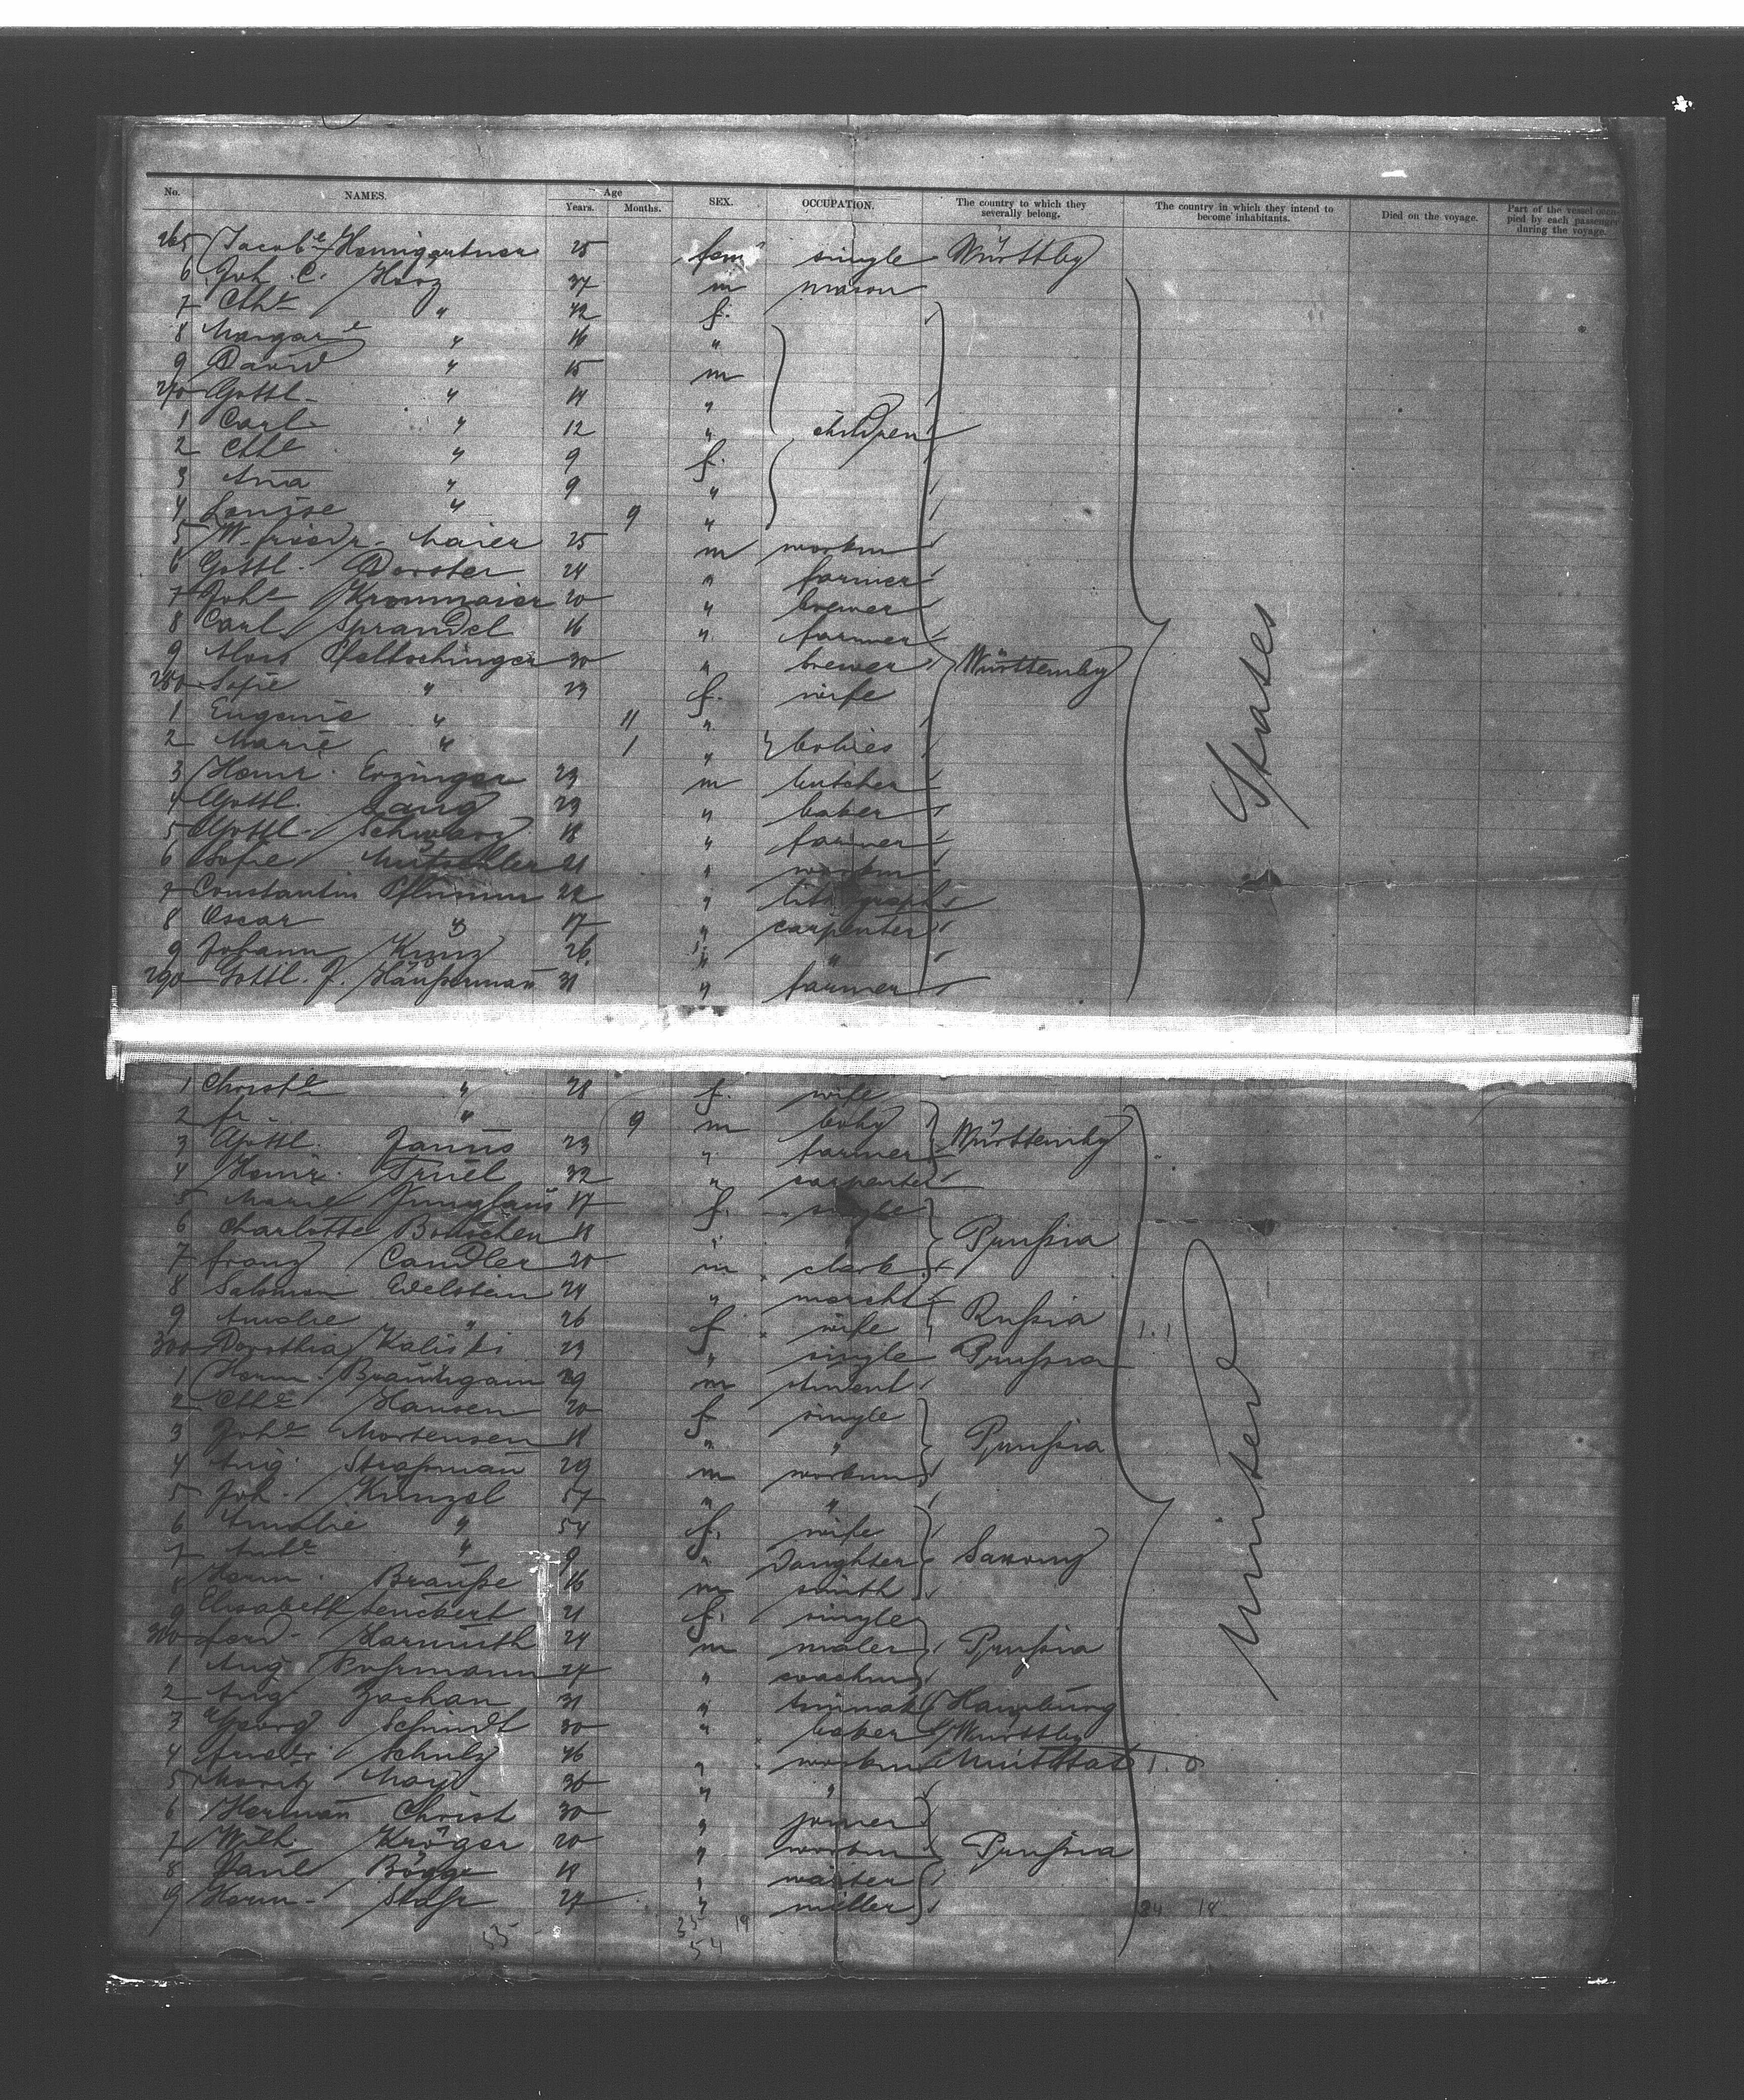 No. NAMES. Age Years. Months. SEX. OCCUPATION. The country to which they severally belong. The country in which they intend to become inhabitants. Died on the voyage. Part of the vessel occupied by each passenger during the voyage.
265 Jacobe Hemigartner 25 fem single Württbg
6 Joh. C. Herz 37 m mason
7 Cthe " 42 f.
8 Margare " 16 "
9 David " 15 m
270 Gottl. " 14 "
1 Carl " 12 " children
2 Cthe " 9 f.
3 Ana " 9 "
4 Louise " 9 "
5 W. Friedr. Maier 25 m workm
6 Gottl. Dorster 24 " farmer
7 Johs Kronmaier 20 " brewer
8 Carl Sprandel 16 " farmer
9 Alois Pfeltschinger 30 " brewer Württembg
280 Sofie " 23 f. wife
1 Eugenie " 11 "
2 Marie " 1 " babies
3 Heinr. Erzinger 23 m butcher
4 Gottl. Lang 23 " baker
5 Gottl. Schwarz 18 " farmer
6 Sofie Mutschler 21 " workm
7 Constantin Pflumm 22 " lithograph
8 Oscar " 17 " carpenter
9 Johann Kunz 26 " "
290 Gottl. F. Häußerman 31 " farmer
States
1 Christe " 28 f. wife
2 Fr. " 9 m baby
3 Gottl. Janus 23 " farmer Württembg
4 Heinr. Truel 32 " carpenter
5 Marie Junghans 17 f. single
6 Charlotte Böttcher 18 " "
7 Franz Candler 20 m clerk Prußia
8 Salomon Edelstein 24 " marcht
9 Amalie " 26 f wife Rußia 1.1
300 Dorothia Kaliski 23 " single Prußia
1 Herm. Bräutigam 29 m student
2 Cthe Hansen 20 f single
3 Johe Mortensen 18 " " Prußia
4 Aug. Straßman 29 m workm
5 Joh. Künzel 57 " "
6 Amalie " 54 f. wife
7 " 9 " Daughter Saxony
8 Herm. Brauße 16 m smith
9 Elisabeth Lenckert 21 f. single
310 Ferd. Harmuth 24 m maler Prußia
1 Aug Fuhrmann 27 " coachm
2 Aug Zachan 31 " Hamburg
3 Georg Schmidt 30 " baker Württbg
4 Friedr. Schulz 46 " workm Unit Stat 1. 0
5 Moritz May 36 " "
6 Herman Christ 30 " joiner
7 Wilh. Kröger 20 " workm Prußia
8 Paul Bögge 18 " waiter
9 Herm. Stahr 27 " miller
United
24 18
55 35 19
54